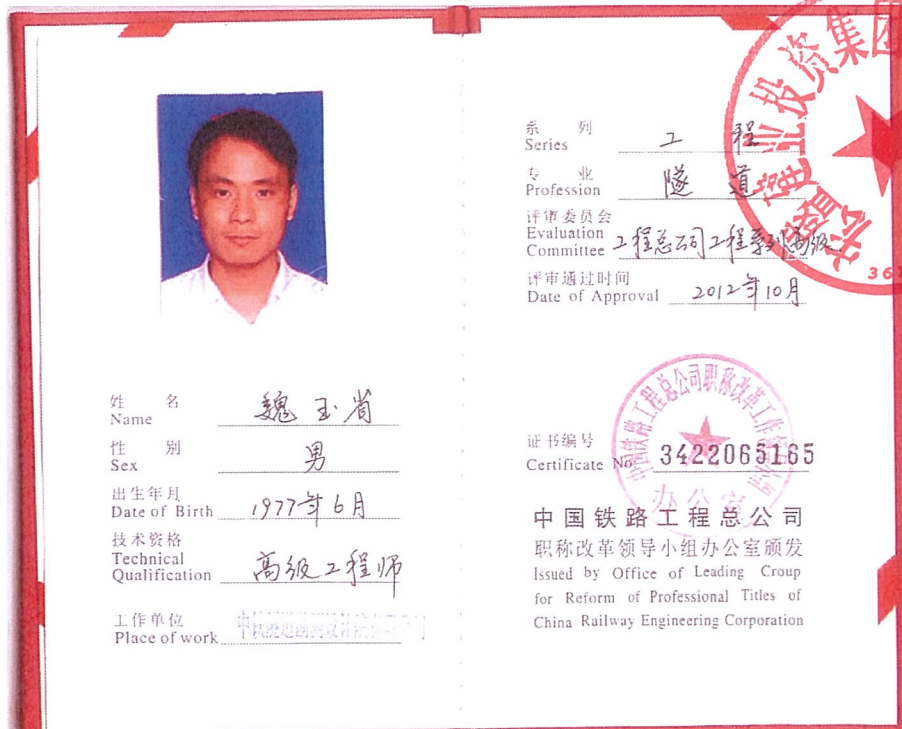 姓 名
Name 魏玉省
性 别
Sex 男
出生年月
Date of Birth 1977年6月
技术资格
Technical
Qualification 高级工程师
工作单位
Place of work
系 列
Series 工 程
专 业
Profession 隧 道
评审委员会
Evaluation
Committee 工程总公司工程系列高级
评审通过时间
Date of Approval 2012年10月
中国铁路工程总公司职称改革工作
办公室
证书编号
Certificate No 3422065165
中国铁路工程总公司
职称改革领导小组办公室颁发
Issued by Office of Leading Croup
for Reform of Professional Titles of
China Railway Engineering Corporation
业投资集团
361